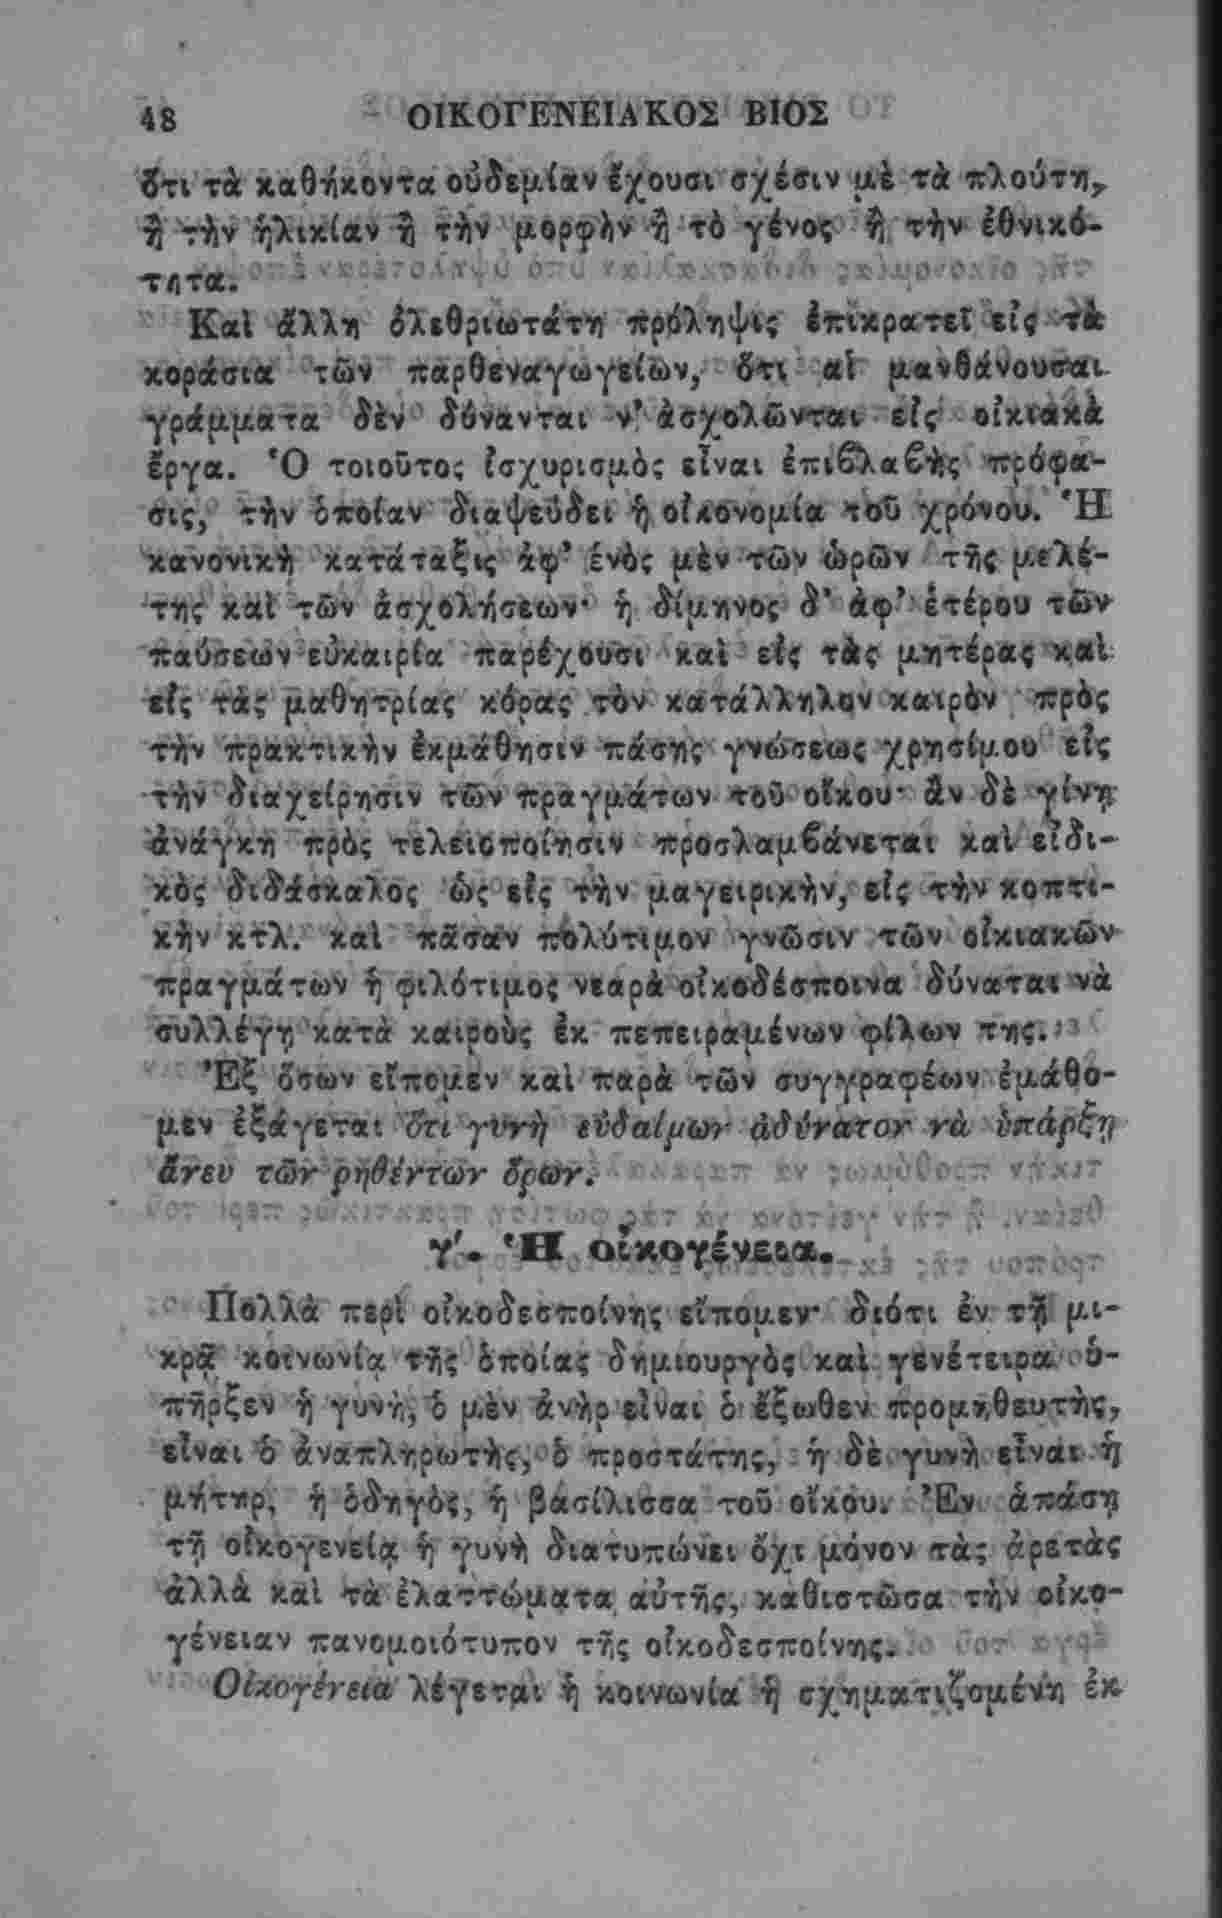 48 ΟΙΚΟΓΕΝΕΙΑΚΟΣ ΒΙΟΣ
ὅτι τὰ καθήκοντα οὐδεμίαν ἔχουσι σχέσιν μὲ τὰ πλούτη,
ἢ τὴν ἡλικίαν ἢ τὴν μορφὴν ἢ τὸ γένος ἢ τὴν ἐθνικό-
τητα.
Καὶ ἄλλη ὀλεθριωτάτη πρόληψις ἐπικρατεῖ εἰς τὰ
κοράσια τῶν παρθεναγωγείων, ὅτι αἱ μανθάνουσαι
γράμματα δὲν δύνανται ν’ ἀσχολῶνται εἰς οἰκιακὰ
ἔργα. Ὁ τοιοῦτος ἰσχυρισμὸς εἶναι ἐπιϐλαϐὴς πρόφα-
σις, τὴν ὁποίαν διαψεύδει ἡ οἰκονομία τοῦ χρόνου. Ἡ
κανονικὴ κατάταξις ἀφ’ ἑνὸς μὲν τῶν ὡρῶν τῆς μελέ-
της καὶ τῶν ἀσχολήσεων· ἡ δίμηνος δ’ ἀφ’ ἑτέρου τῶν
παύσεων εὐκαιρία παρέχουσι καὶ εἰς τὰς μητέρας καὶ
εἰς τὰς μαθητρίας κόρας τὸν κατάλληλον καιρὸν πρὸς
τὴν πρακτικὴν ἐκμάθησιν πάσης γνώσεως χρησίμου εἰς
τὴν διαχείρησιν τῶν πραγμάτων τοῦ οἴκου· ἂν δὲ γίνῃ
ἀνάγκη πρὸς τελειοποίησιν προσλαμϐάνεται καὶ εἰδι-
κὸς διδάσκαλος ὡς εἰς τὴν μαγειρικὴν, εἰς τὴν κοπτι-
κὴν κτλ. καὶ πᾶσαν πολύτιμον γνῶσιν τῶν οἰκιακῶν
πραγμάτων ἡ φιλότιμος νεαρὰ οἰκοδέσποινα δύναται νὰ
συλλέγῃ κατὰ καιροὺς ἐκ πεπειραμένων φίλων της.
Ἐξ ὅσων εἴπομεν καὶ παρὰ τῶν συγγραφέων ἐμάθο-
μεν ἐξάγεται ὅτι γυνὴ εὐδαίμων ἀδύνατον νὰ ὑπάρξῃ
ἄνευ τῶν ῥηθέντων ὅρων.
γ΄. Ἡ οἰκογένεια.
Πολλὰ περὶ οἰκοδεσποίνης εἴπομεν· διότι ἐν τῇ μι-
κρᾷ κοινωνίᾳ τῆς ὁποίας δημιουργὸς καὶ γενέτειρα ὑ-
πῆρξεν ἡ γυνὴ, ὁ μὲν ἀνὴρ εἶναι ὁ ἔξωθεν προμηθευτὴς,
εἶναι ὁ ἀναπληρωτὴς, ὁ προστάτης, ἡ δὲ γυνὴ εἶναι ἡ
μήτηρ, ἡ ὁδηγὸς, ἡ βασίλισσα τοῦ οἴκου. Ἐν ἁπάσῃ
τῇ οἰκογενείᾳ ἡ γυνὴ διατυπώνει ὄχι μόνον τὰς ἀρετὰς
ἀλλὰ καὶ τὰ ἐλαττώματα αὐτῆς, καθιστῶσα τὴν οἰκο-
γένειαν πανομοιότυπον τῆς οἰκοδεσποίνης.
Οἰκογένεια λέγεται ἡ κοινωνία ἡ σχηματιζομένη ἐκ